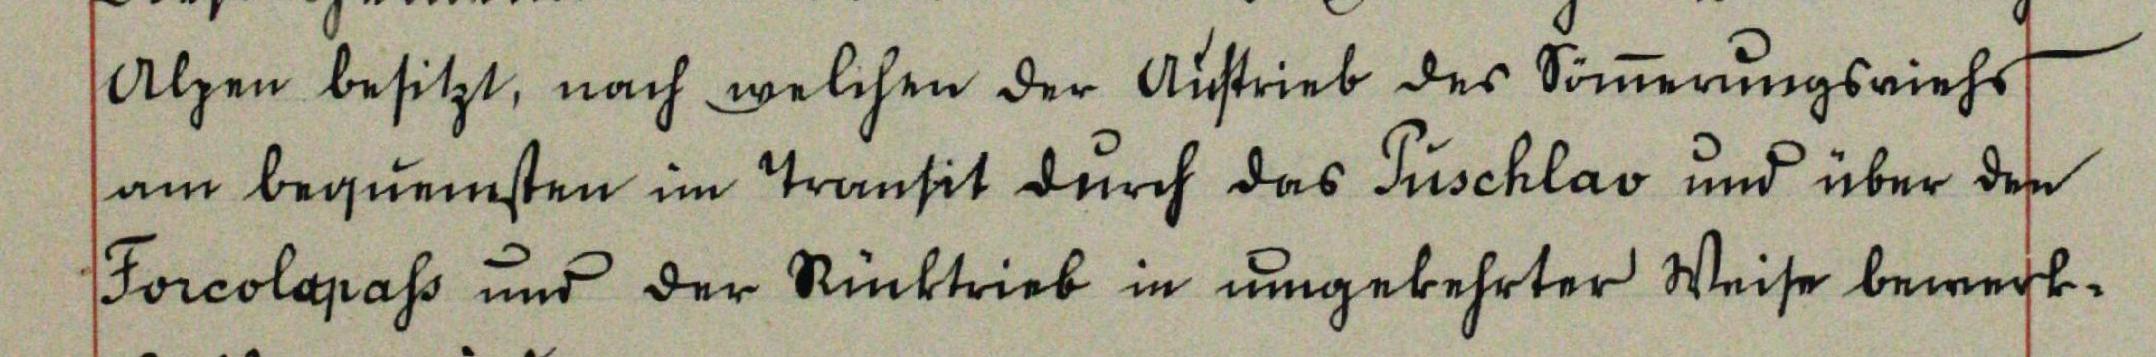 Alpen besitzt, nach welchen der Austrieb des Sömerungsviehs
am bequemsten im Transit durch das Puschlav und über den
Forcolapass und der Rücktrieb in umgekehrter Weise bewerk-